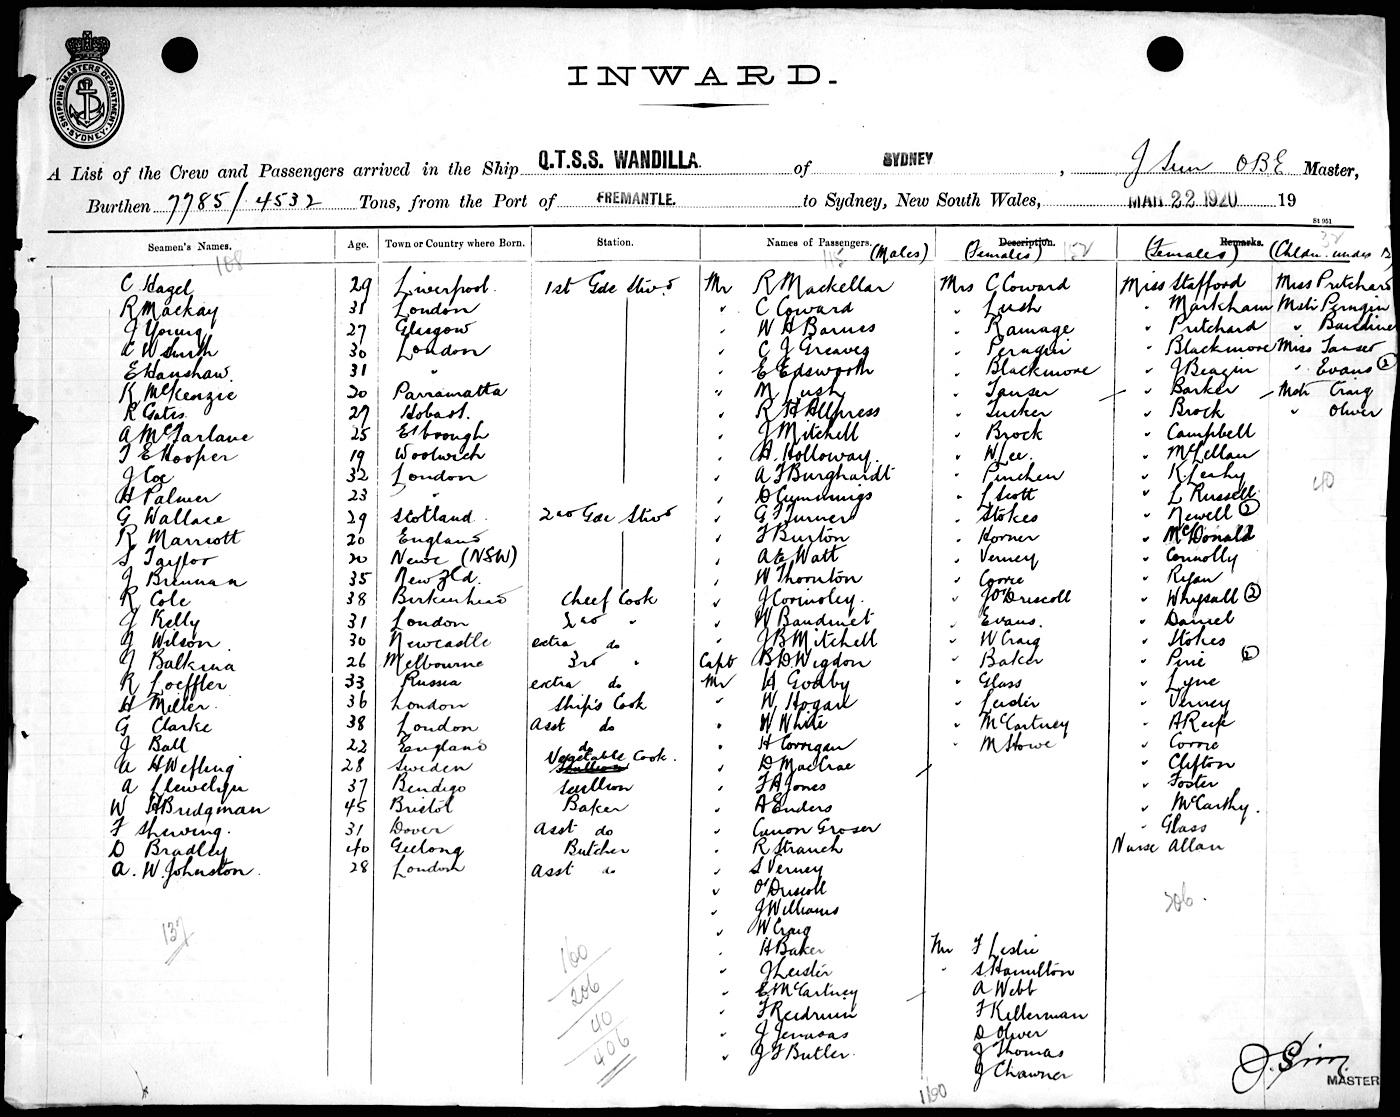 INWARD.
SHIPPING MASTERS DEPARTMENT. SYDNEY
A List of the Crew and Passengers arrived in the Ship Q.T.S.S. WANDILLA. of SYDNEY, J Sim OBE Master,
Burthen 7785/4532 Tons, from the Port of FREMANTLE. to Sydney, New South Wales, MAR 22 1920 19
St 951
Seamen's Names. Age. Town or Country where Born. Station. Names of Passengers. (Males) Description. (Females) Remarks. (Females) (Chldn. under 12)
108 115 152 32
C Hazel 29 Liverpool. 1st Gde Stwd Mr R Mackellar Mrs C Coward Miss Stafford Miss Pritchard
R Mackay 31 London " C Coward " Lush " Markham Mstr Perugin
J Young 27 Glasgow " W H Barnes " Ramage " Pritchard "
C W Smith 30 London " C J Greaves " Perugin " Blackmore Miss Tanser
E Hanshaw. 31 " " E Edsworth " Blackmore " J Beazin " Evans (2)
K McKenzie 20 Parramatta " M Lush " Tanser " Barker Mstr Craig
R Gates 27 Hobart. " R H Allpress " Tucker " Brock " Oliver
A McFarlane 25 " J Mitchell " Brock " Campbell
T E Hooper 19 Woolwich " A. Holloway. " W Lee. " McLellan
J Coe 32 London " A F Burghardt " Pinchen " K Leahy 40
H Palmer 23 " " D Cummings " L Scott " L Russell
G Wallace 29 Scotland. 2nd Gde Stwd " G F Turner " Stokes " Newell (2)
R Marriott 20 England " F Burton " Horner " McDonald
S Taylor 20 Newc (NSW) " A E Watt " Verney " Connolly
J Brennan 35 New Zld. " W Thornton " Corrie " Ryan
R Cole 38 Birkenhead Cheef Cook " J Cornoley. " J O'Driscoll " Whysall (2)
J Kelly 31 London 2nd " " W Baudinet " Evans. " Daniel
J Wilson. 30 Newcastle extra do " J B Mitchell " W Craig " Stokes
J Balkina 26 Melbourne 3rd " Capt B D Wigdon " Baker " Pirie (2)
R Loeffler 33 Russia extra do Mr H Godby " Glass " Lyne
H Miller. 36 London Ship's Cook " W Hogan " Leislie " Verney
G Clarke 38 London Asst do " W White " McCartney " A Reef
J Ball 22 England do " H Corrigan " M Howe " Corrie
A H Wefling 28 Sweden Vegetable Cook. " D MacCrae " Clifton
A Llewelyn 37 Bendigo Scullion " F A Jones " Foster
W H Bridgman 45 Bristol Baker " A Enders " McCarthy.
F Sherwing. 31 Dover Asst do " Canon Groser " Glass
D Bradley 40 Geelong Butcher " R Strauch Nurse Allan
A. W. Johnston. 28 London Asst do " S Verney
" O'Driscoll
" J Williams 206.
137 " W Craig
160 " H Baker Mr F Leslie
206 " J Leislie " S Hamilton
40 " E McCartney A Webb
406 " F Reidruin F Kellerman
" J Jenasas D Oliver
" J F Butler. J Thomas
J Chawner
160
J. Sim
MASTER